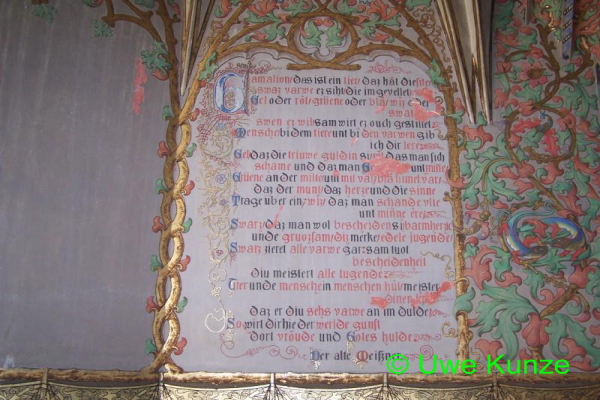 Gamalion das ist ein tier daz hât die site
swaz varwe ez siht die im gevellet
Gel oder rôt grüene oder blâ wiz oder
swen ez wil sam wirt ez ouch gestalt
Mensche bi dem tiere und bi den varwen gib
ich dir lere
Gel daz die triuwe guldin si das man sich
schame und daz man
Grüene an der milte
daz der munt daz herze und die sinne
Trage über ein wiz daz man schande vite
unt minne ere
Swarz daz man wol bescheiden si barmherze
unde gruozsam diz merke edele jugende
Swarz zieret alle varwe gar sam tuot
bescheidenheit
diu meistert alle tugende
Tier unde mensche in menschen hül meistet
sinen
daz er diu sehs varwe an im dulde
So wirt dir hie der werlde gunst
dort vröude und Gotes hulde
Der alte Meißner
© Uwe Kunze